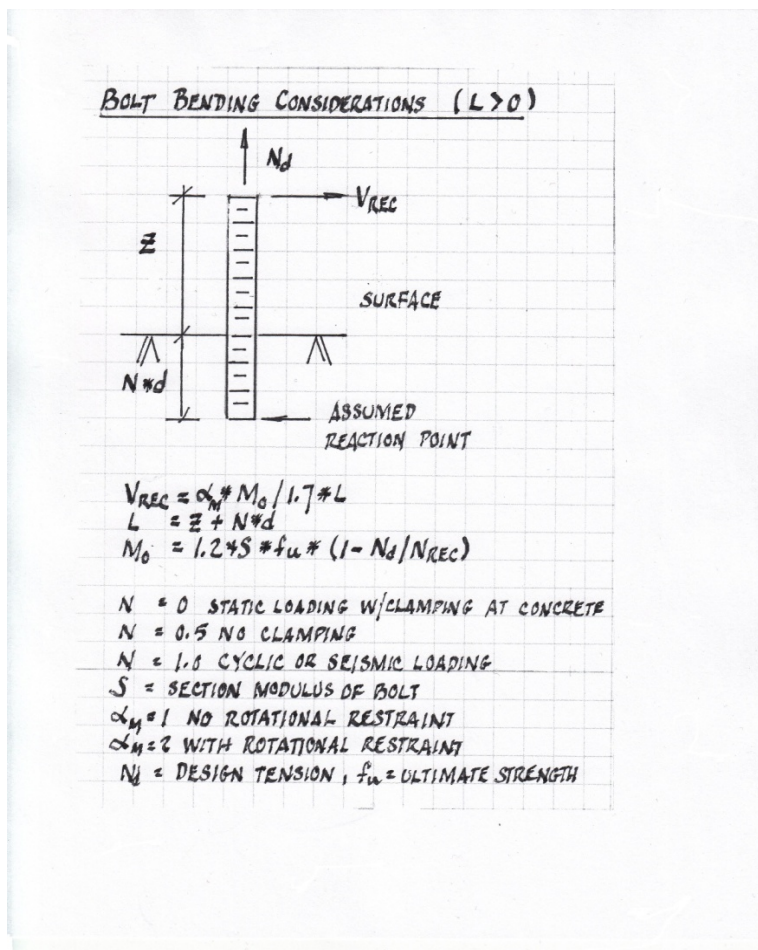 BOLT BENDING CONSIDERATIONS (L>0)
Nd
VREC
Z
SURFACE
N*d
ASSUMED
REACTION POINT
VREC = αM* Mo / 1.7 * L
L = Z + N*d
Mo = 1.2*S * fu * (1 - Nd/NREC)
N = 0 STATIC LOADING W/CLAMPING AT CONCRETE
N = 0.5 NO CLAMPING
N = 1.0 CYCLIC OR SEISMIC LOADING
S = SECTION MODULUS OF BOLT
αM = 1 NO ROTATIONAL RESTRAINT
αM = 2 WITH ROTATIONAL RESTRAINT
Nd = DESIGN TENSION, fu = ULTIMATE STRENGTH